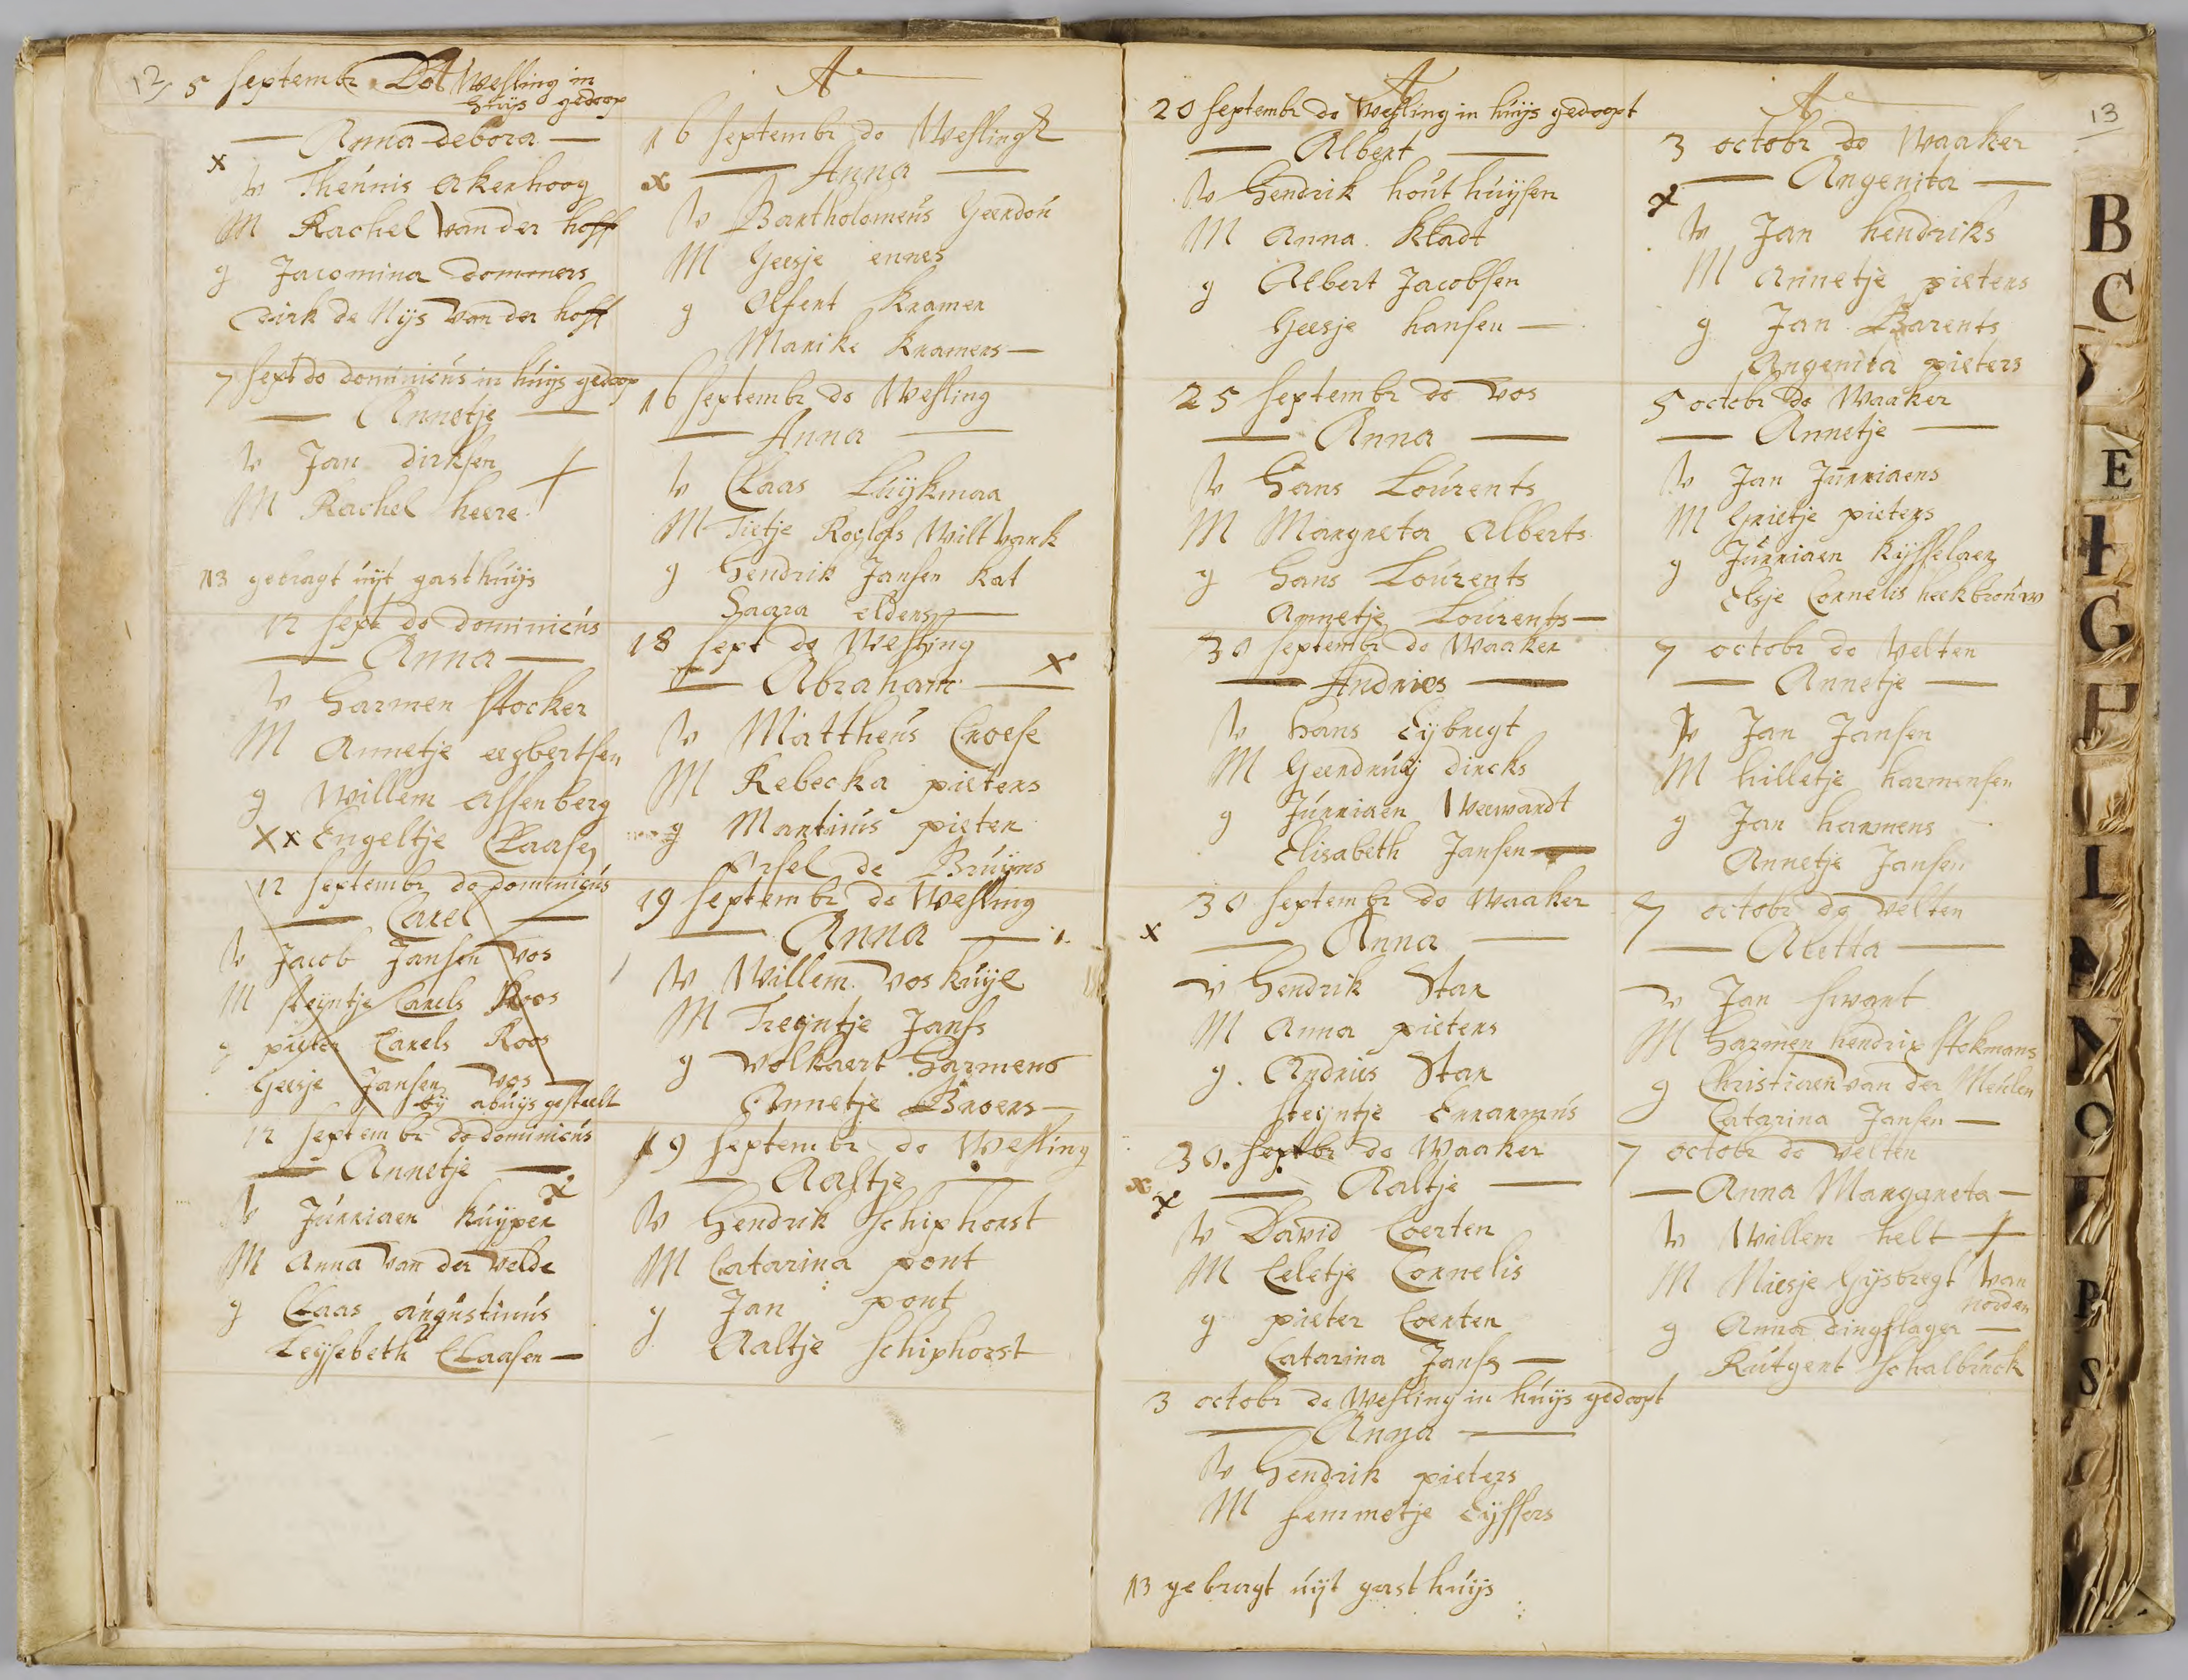 12
5 septembr Do Wesling in
huijs gedoop
Anna debora
x
v Theunis akerhoog
M Rachel van der hoff
g Jacomina dommers
dirk de Nijs van der hoff
7 sept do dominicus in huijs gedoop
Annetje
v Jan dirksen
M Rachel heere
NB gebragt uijt gasthuijs
12 sept do dominicus
Anna
v Harmen stocker
M Annetje egbertsen
g Willem assenberg
xx Engeltje Claasen
12 septembr do dominicus
Carel
v Jacob Jansen vos
M steijntje Carels Roos
g pieter Carels Roos
Geesje Jansen vos
bij abuijs gestelt
12 septembr do dominicus
Annetje
x
v Jurriaen kuijper
M Anna van der velde
g Claas augustinus
Leijsebeth Claasen
A
16 septembr do Wesling
Anna
x
v Bartholomeus Geerdou
M Geesje ennes
g Olfert Kramer
Marike Kramers
16 septembr do Wesling
Anna
v Claas Luijkmaa
M Tietje Roelofs Wiltvank
g Hendrik Jansen Kat
Saara elders
18 sept do Wesling
x
Abraham
v Mattheus Croese
M Rebecka pieters
g Martinus pieter
orsel de Bruijns
19 septembr do Wesling
Anna
v Willem voskuijl
M Treijntje Jans
g volkaert Harmens
Annetje Broers
19 septembr do Wesling
Aaltje
v Hendrik schiphorst
M Catarina pont
g Jan pont
Aaltje schiphorst
A
20 septembr do Wesling in huijs gedoopt
Albert
v Hendrik houthuijsen
M Anna Kladt
g Albert Jacobsen
Geesje hansen
25 septembr do vos
Anna
v Hans Lourents
M Margreta Alberts
g Hans Lourents
Annetje Lourents
30 septembr do Waaker
Andries
v Hans Eijbregt
M Geerdruij dircks
g Jurriaen Weewardt
Elisabeth Jansen
30 septembr do Waaker
x
Anna
v Hendrik Star
M Anna pieters
g Andries Star
steijntje Errarmus
30 septbr do Waaker
x
x
Aaltje
v David Coerten
M Celetje Cornelis
g pieter Coerten
Catarina Jans
3 octobr do Wesling in huijs gedoopt
Anna
v Hendrik pieters
M femmetje Eijssers
NB gebragt uijt gasthuijs
A
13
3 octobr do Waaker
Angenita
x
v Jan hendriks
M Annetje pieters
g Jan Barents
Angenita pieters
5 octobr do Waaker
Annetje
v Jan Jurriaens
M Grietje pieters
g Jurriaen kijsselaer
Elsje Cornelis heekbrouw
7 octobr do velten
Annetje
v Jan Jansen
M hilletje harmensen
g Jan harmens
Annetje Jansen
7 octobr do velten
Aletta
v Jan swart
M Harmen hendrix stokmans
g Christiaen van der Meulen
Catarina Jansen
7 octobr do velten
Anna Margareta
v Willem helt
M Niesje Gijsbregt van
norden
g Anna dingslager
Rutgert schalbrock
B
C
E
G
L
N
O
P
S